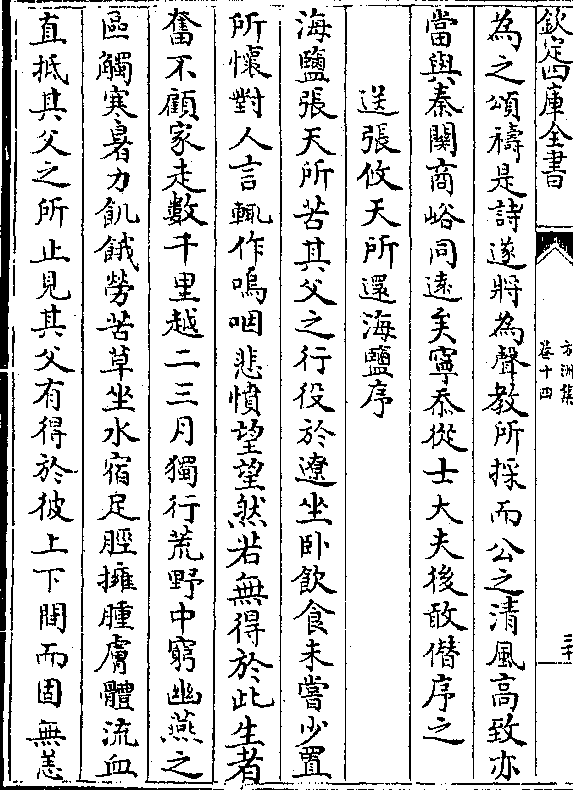 欽定四庫全書
方洲集
卷十四
三十
為之頌禱是詩遂將為聲教所採而公之清風高致亦
當與秦關商峪同遠矣寧忝從士大夫後敢僭序之
送張攸天所還海鹽序
海鹽張天所苦其父之行役於遼坐卧飲食未嘗少置
所懷對人言輒作嗚咽悲憤望望然若無得於此生者
奮不顧家走數千里越二三月獨行荒野中窮幽燕之
區觸寒暑力飢餓勞苦草坐水宿足脛擁腫膚體流血
直抵其父之所止見其父有得於彼上下間而固無恙